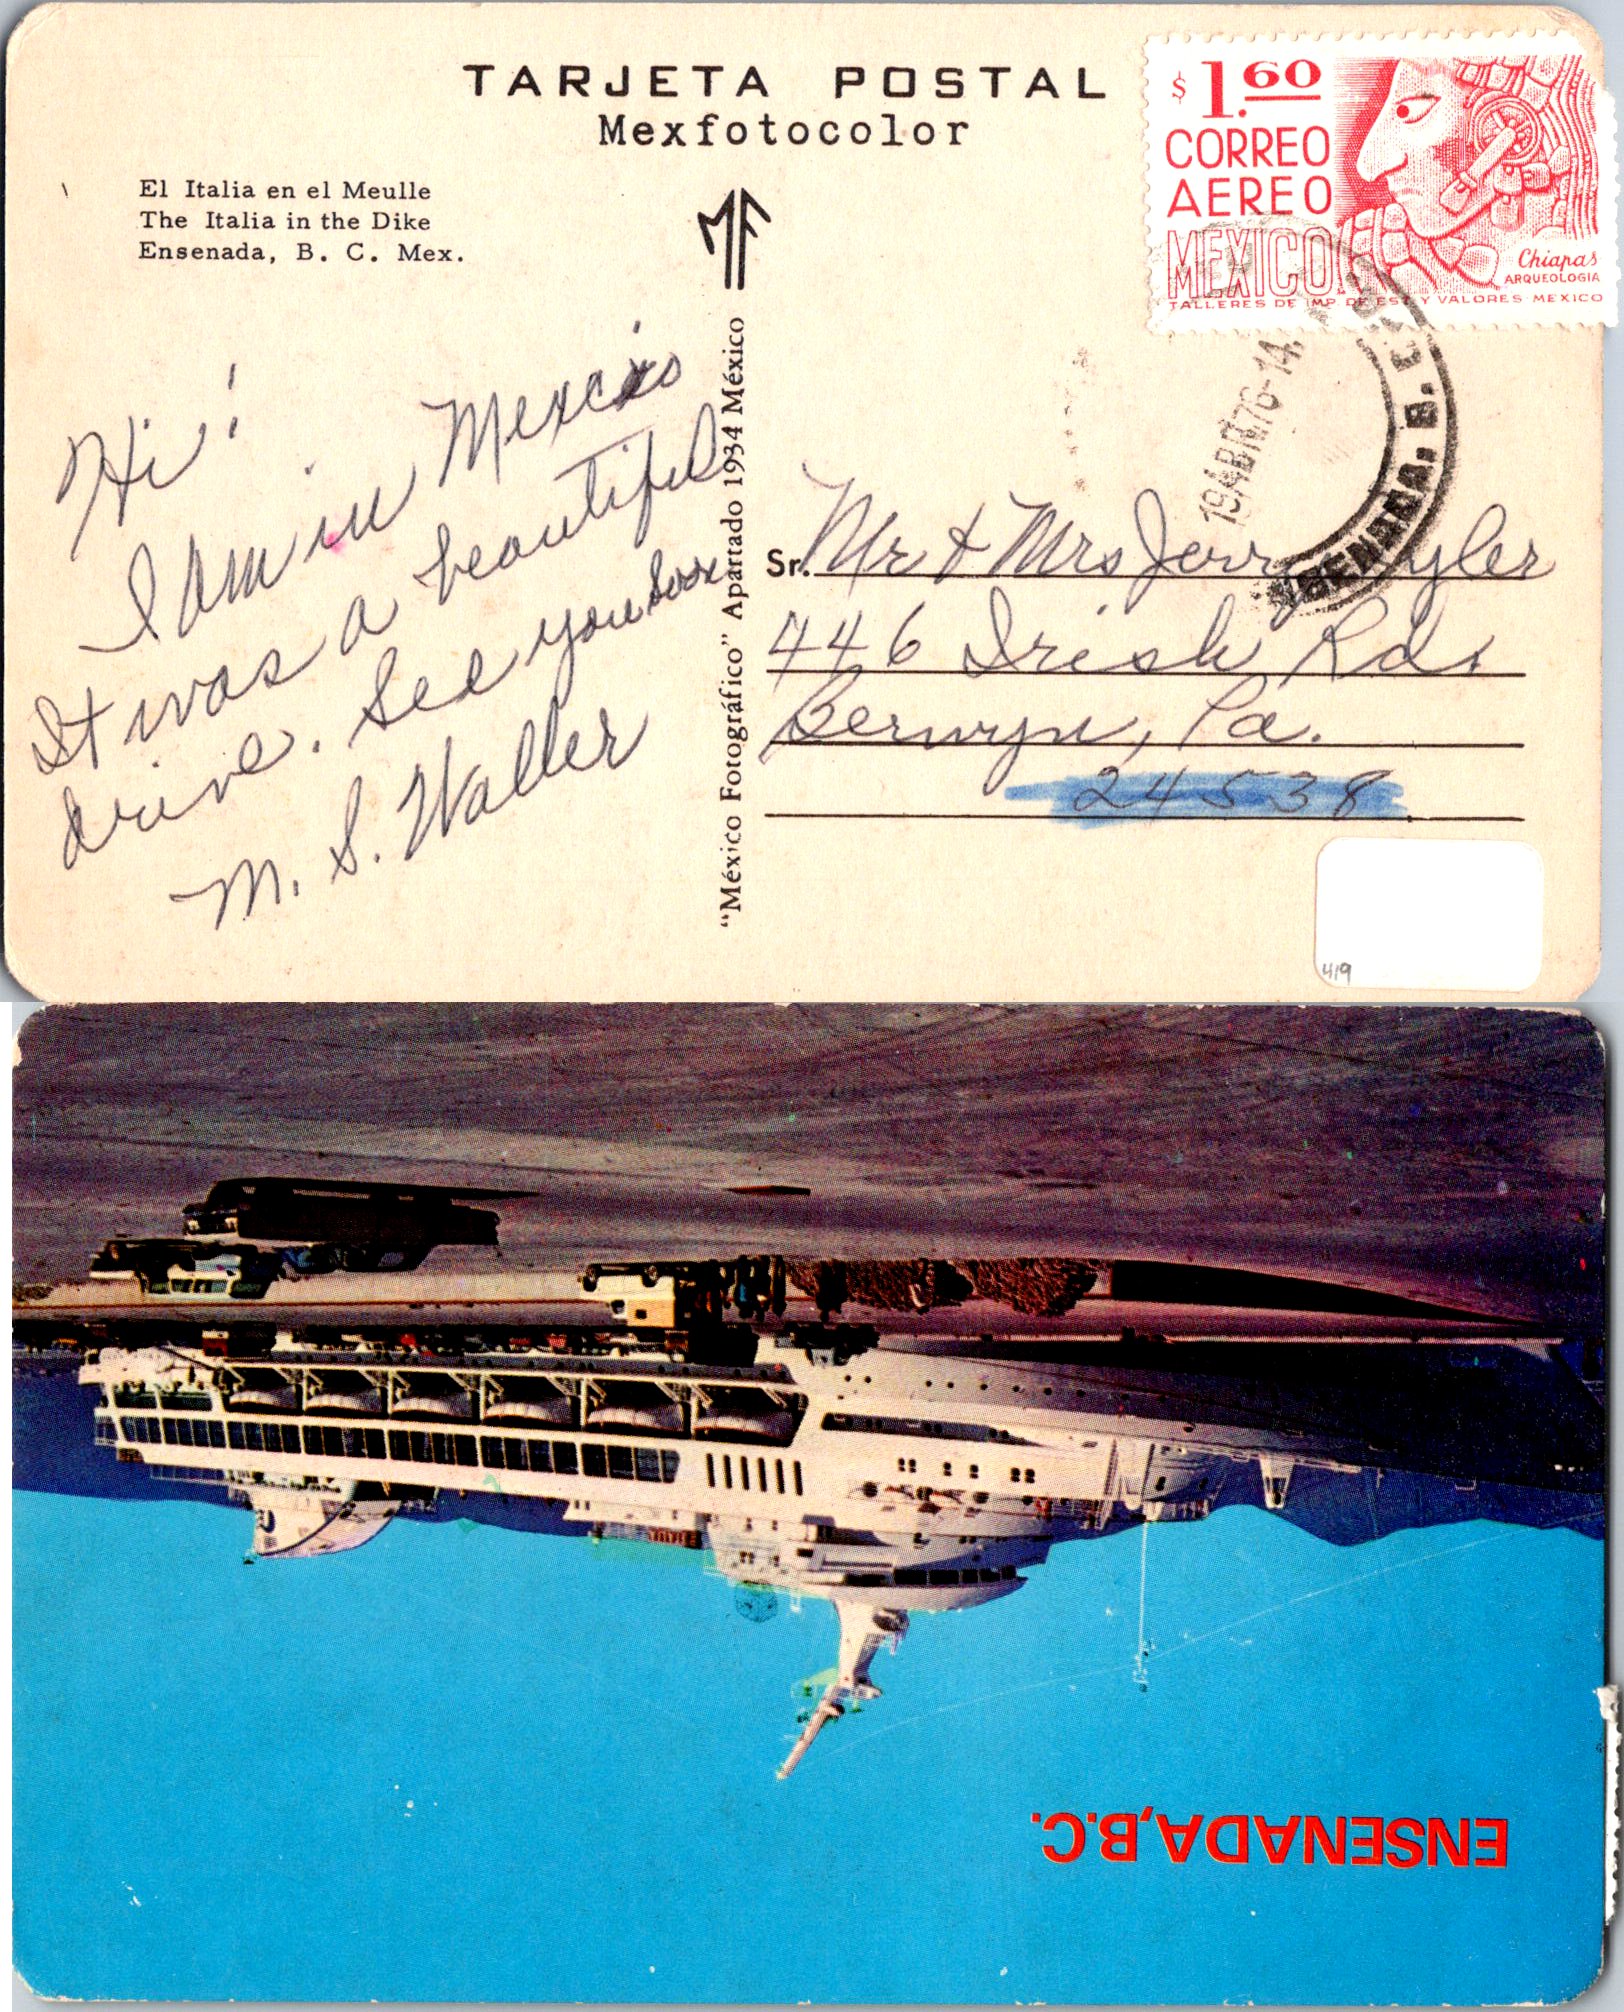 TARJETA POSTAL
Mexfotocolor
El Italia en el Meulle
The Italia in the Dike
Ensenada, B. C. Mex.
MF
$1.60
CORREO
AEREO
MEXICO
Chiapas
ARQUEOLOGIA
TALLERES DE IMP. DE EST. Y VALORES-MEXICO
19ABR76-14
ENSENADA, B. C.
Hi!
I am in Mexico
It was a beautiful
drive. See you soon
M. S. Waller
"México Fotográfico" Apartado 1934 México
Sr. Mr & Mrs Jerry yler
446 Irish Rds
Berwyn, Pa.
24538
419
ENSENADA, B.C.